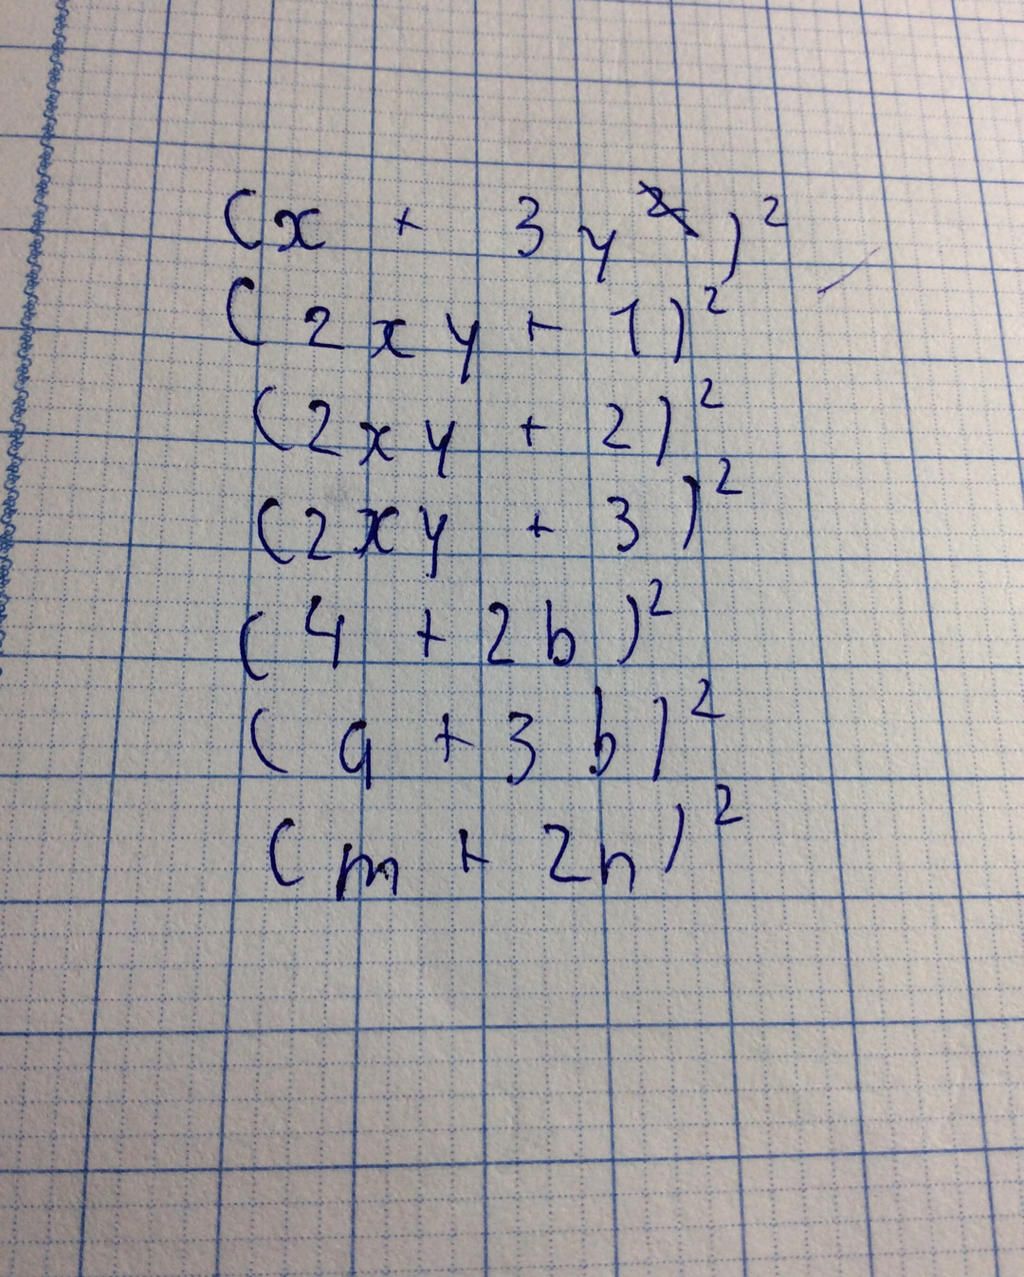 (x + 3y)²
(2xy + 1)²
(2xy + 2)²
(2xy + 3)²
(4 + 2b)²
(a + 3b)²
(m + 2n)²